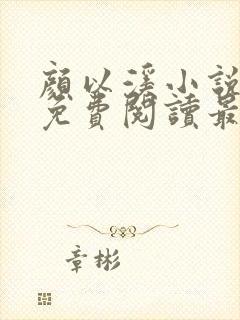 顏以溪小說
免費閱讀最
章彬